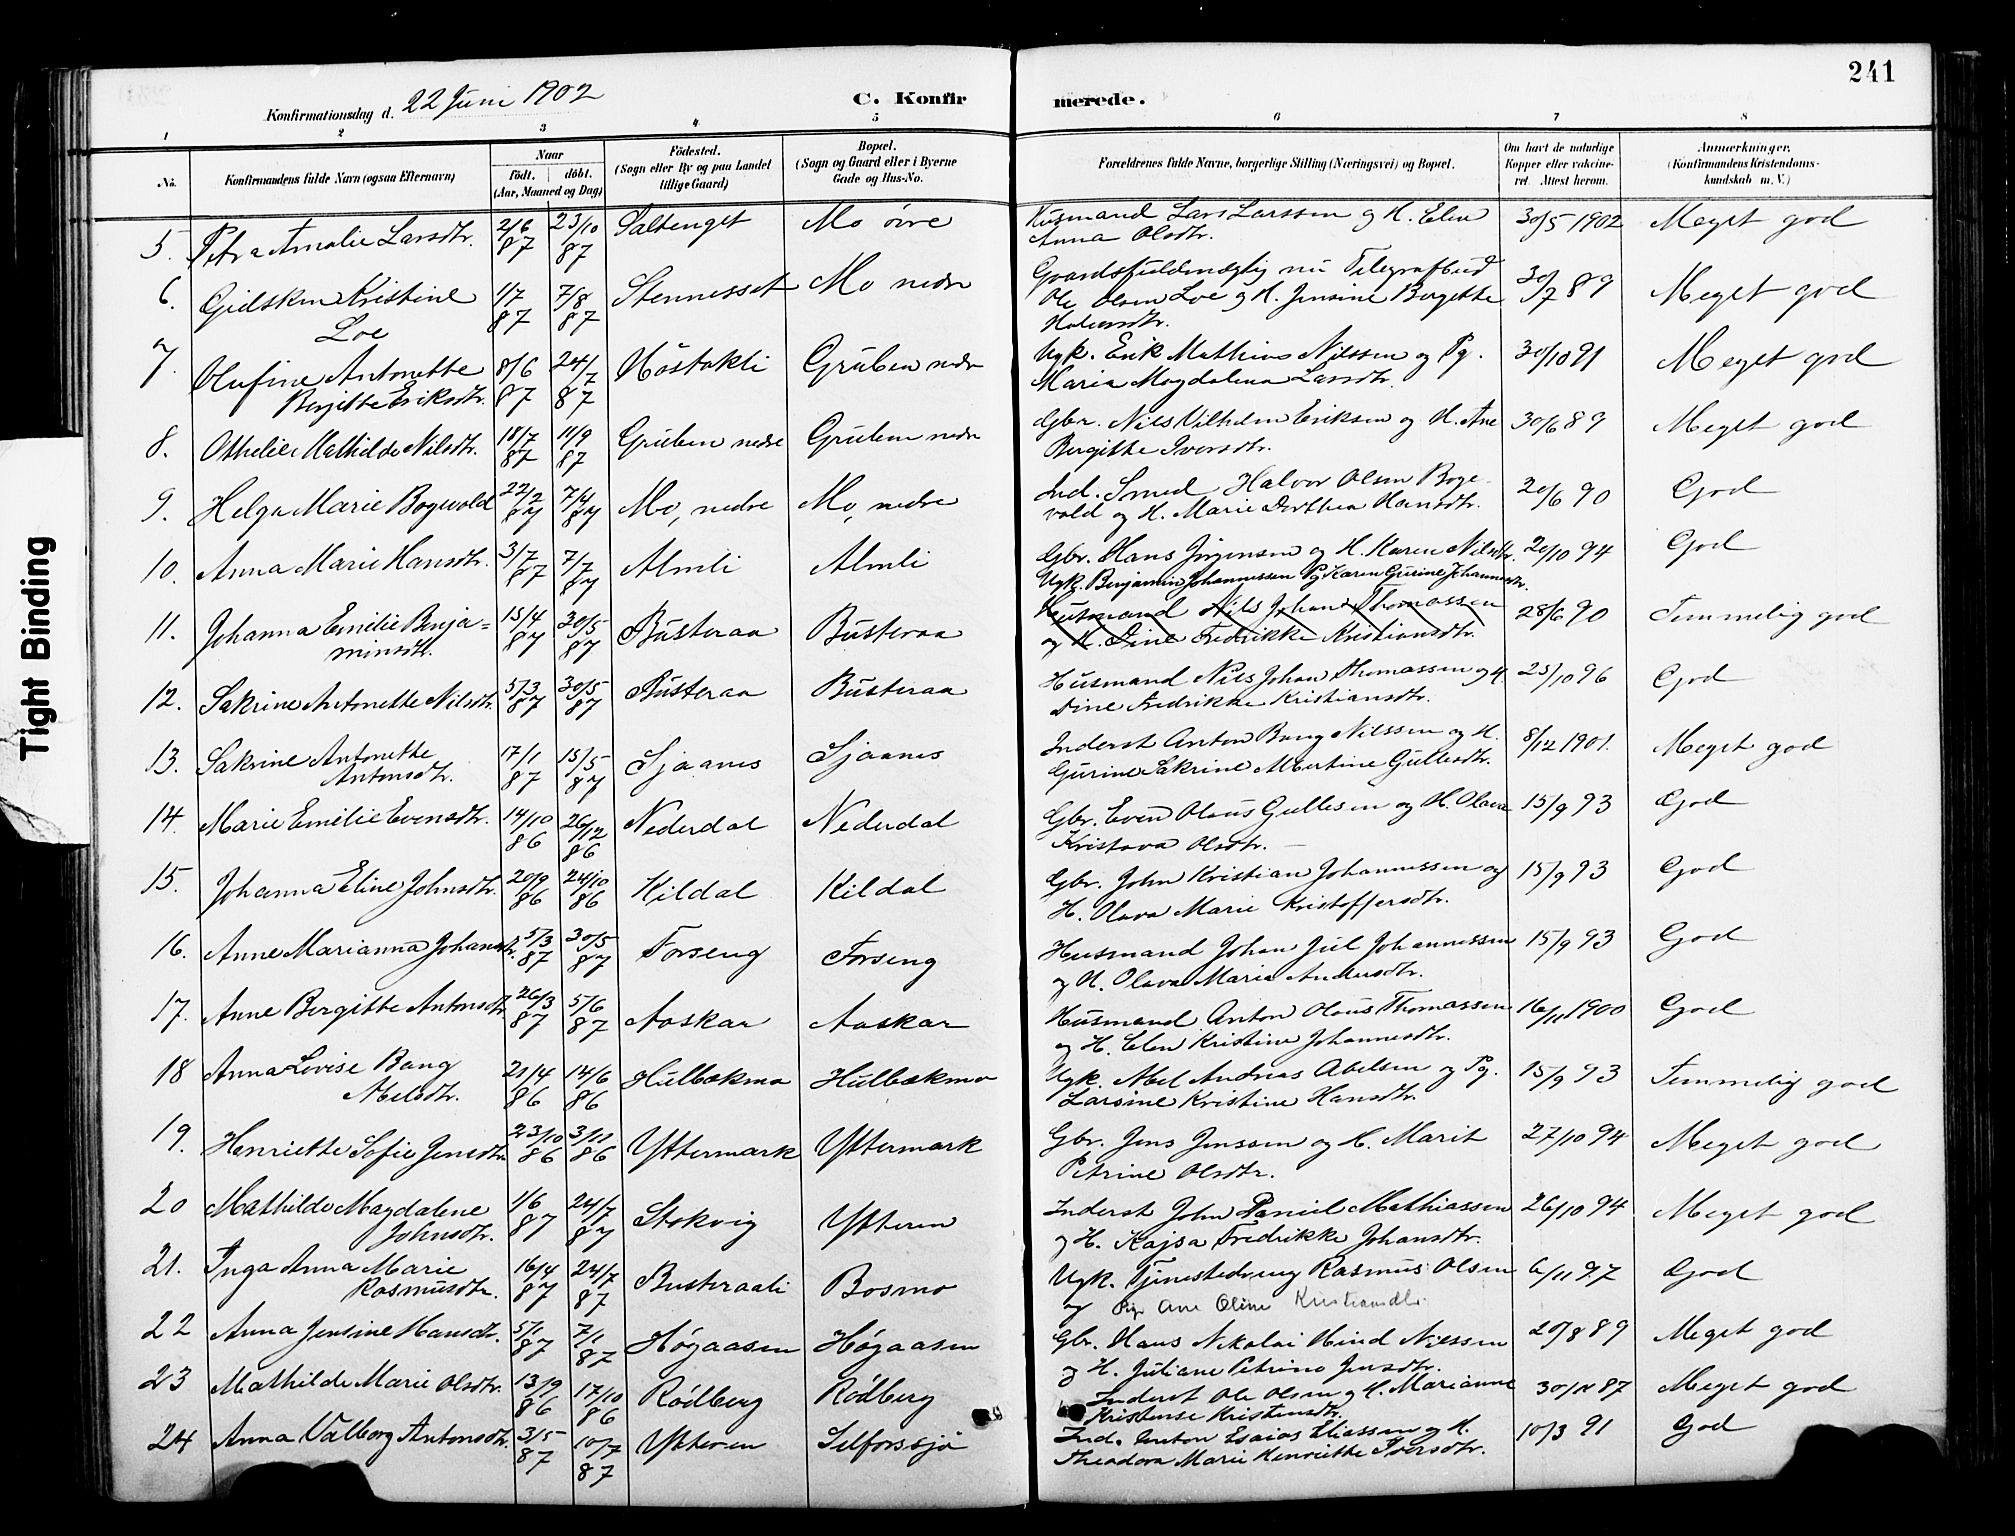 241
Konfirmationsdag d. 22 Juni 1902 C. Konfirmerede.
1 2 3 4 5 6 7 8
No. Konfirmandens fulde Navn (ogsaa Efternavn) Naar født. døbt. (Aar, Maaned og Dag) Fødested. (Sogn eller By og paa Landet tillige Gaard) Bopæl. (Sogn og Gaard eller i Byerne Gade og Hus-No. Forældrenes fulde Navne, borgerlige Stilling (Næringsvei) og Bopæl. Om havt de naturlige Kopper eller vaccineret. Attest herom. Anmærkninger. (Konfirmandens Kristendomskundskab m. V.)
5. Petra Amalie Larsdtr. 2/6 87 23/10 87 Saltenget Mo övre Husmand Lars Larssen og H. Elen Anna Olsdtr. 30/5 1902 Meget god
6. Gidsken Kristine Loe 1/7 87 7/8 87 Stennesset Mo nedre Gaardsfuldmægtig nu Telegrafbud Ole Olsen Loe og H. Jensine Bergitte 30/7 89 Meget god
7. Olufine Antonette Bergitte Eriksdtr. 8/6 87 24/7 87 Höstakli Gruben nedre Ugk. Erik Mathias Nilssen og Pg. Maria Magdalena Larsdtr. 30/10 91 Meget god
8. Othelie Mathilde Nilsdtr. 18/7 87 11/9 87 Gruben nedre Gruben nedre Gbr. Nils Vilhelm Eriksen og H. Ane Bergitte Iversdtr. 30/6 89 Meget god
9. Helga Marie Bogevold 22/2 87 7/4 87 Mo, nedre Mo, nedre Ind. Smed Halvor Olsen Bogevold og H. Marie Dorthea Hansdtr. 20/6 90 God
10. Anna Marie Hansdtr. 3/7 87 7/7 87 Almli Almli Gbr. Hans Jörgensen og H. Karen Nilsdtr. 20/10 94 God
11. Johanna Emilie Benjaminsdtr. 15/4 87 30/5 87 Busteraa Busteraa Ugk. Benjamin Johannessen Pg Karen Gurine Johannesdtr. Husmand Nils Johan Thomassen og H. Dine Fredrikke Kristiansdtr. 28/6 90 Temmelig god
12. Sakrine Antonette Nilsdtr. 5/3 87 30/5 87 Busteraa Busteraa Husmand Nils Johan Thomassen og H. Dine Fredrikke Kristiansdtr. 25/10 96 God
13. Sakrine Antonette Antonsdtr. 17/1 87 15/5 87 Sjaanes Sjaanes Inderst Anton Bang Nilssen og H. Gurine Sakrine Martine Gullesdtr. 8/12 1901. Meget god
14. Marie Emilie Evensdtr. 14/10 86 26/12 86 Nederdal Nederdal Gbr. Even Olaus Gullesen og H. Olava Kristova Olsdtr. 15/9 93 God
15. Johanna Eline Johnsdtr. 20/9 86 24/10 86 Kildal Kildal Gbr. John Kristian Johannessen og H. Olava Marie Kristoffersdtr. 15/9 93 God
16. Anne Marianna Johansdtr. 5/3 87 30/5 87 Forseng Forseng Husmand Johan Jul Johannessen og H. Olava Maria Andersdtr. 15/9 93 God
17. Anne Bergitte Antonsdtr. 26/3 87 5/6 87 Aaskar Aaskar Husmand Anton Olaus Thomassen og H. Elen Kristine Johannesdtr. 16/11 1900 God
18 Anna Lovise Bang Abelsdtr. 21/4 86 14/6 86 Hulbækmo Hulbækmo Ugk. Abel Andreas Abelsen og Pg. Larsine Kristine Hansdtr. 15/9 93 Temmelig god
19. Henriette Sofie Jensdtr. 23/10 86 3/11 86 Yttermark Yttermark Gbr. Jens Jenssen og H. Marit Petrine Olsdtr. 27/10 94 Meget god
20 Mathilde Magdalene Johnsdtr. 1/6 87 24/7 87 Stokvig Ytteren Inderst John Daniel Mathiassen og H. Kajsa Fredrikke Johansdtr. 26/10 94 Meget god
21. Inga Anna Marie Rasmusdtr. 16/4 87 24/7 87 Busteraali Bosmo Ugk. Tjenestedreng Rasmus Olsen og Pig. Ane Oline Kristiansdtr. 6/11 97 God
22 Anna Jensine Hansdtr. 5/1 87 7/1 87 Høgaasen Høgaasen Gbr. Hans Nikolai Hind Nilssen og H. Juliane Petrine Jensdtr. 20/8 89 Meget god
23 Mathilde Marie Olsdtr. 13/9 86 17/10 86 Rödberg Rödberg Inderst Ole Olsen og H. Marianne Kristense Kristensdtr. 30/11 87 Meget god
24 Anna Valborg Antonsdtr. 3/5 87 10/7 87 Ytteren Selforssjö Ind. Anton Esaias Eliassen og H. Theodora Marie Henriette Iversdtr. 10/3 91 God
Tight Binding